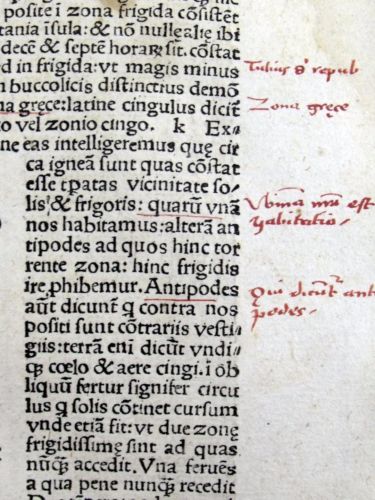 posite i zona frigida cōsistēt
tania isula: & nō nullæ alię ibi
decē & septē horaꝝ. sit. cōstat
ed in frigida: vt magis minus
n buccolicis distinctius demō
na gręce: latine cingulus dicit̄
to vel zonio cingo. k Ex
ne eas intelligeremus quę cir
ca igneā sunt quas cōstat
esse tꝑatas vicinitate so-
lis/ & frigoris: quarū vnā
nos habitamus: alterā an
tipodes ad quos hinc tor
rente zona: hinc frigidis
ire ꝓhibemur. Antipodes
aūt dicunt̄ q contra nos
positi sunt cōtrariis vesti/
giis: terrā eni dicūt vndi/
qꝫ cœlo & aere cingi. i ob
liquū fertur signifer circu
lus q solis cōtinet cursum
vnde etiā fit: vt due zonę
frigidissimę sint ad quas
nūqꝫ accedit. Vna feruēs
a qua pene nunqꝫ recedit
Tulius repub
Zona gręce
est
habitatio.
Qui dicūt anti
podes.